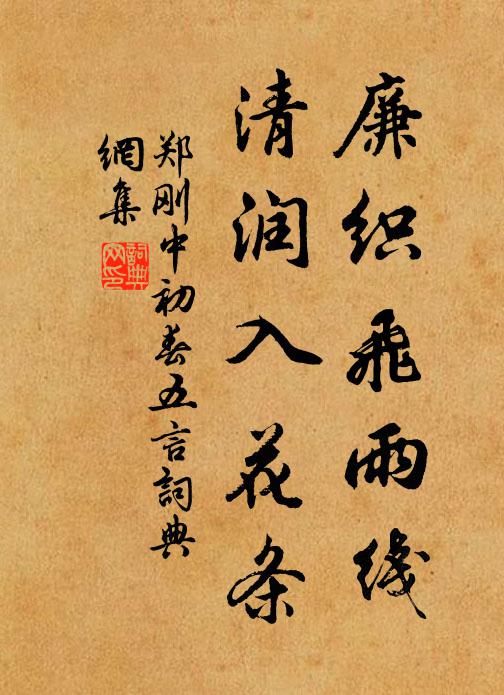 廉织飛雨线
清润入花条
郑刚中初春五言詞典
網集
詞典网印